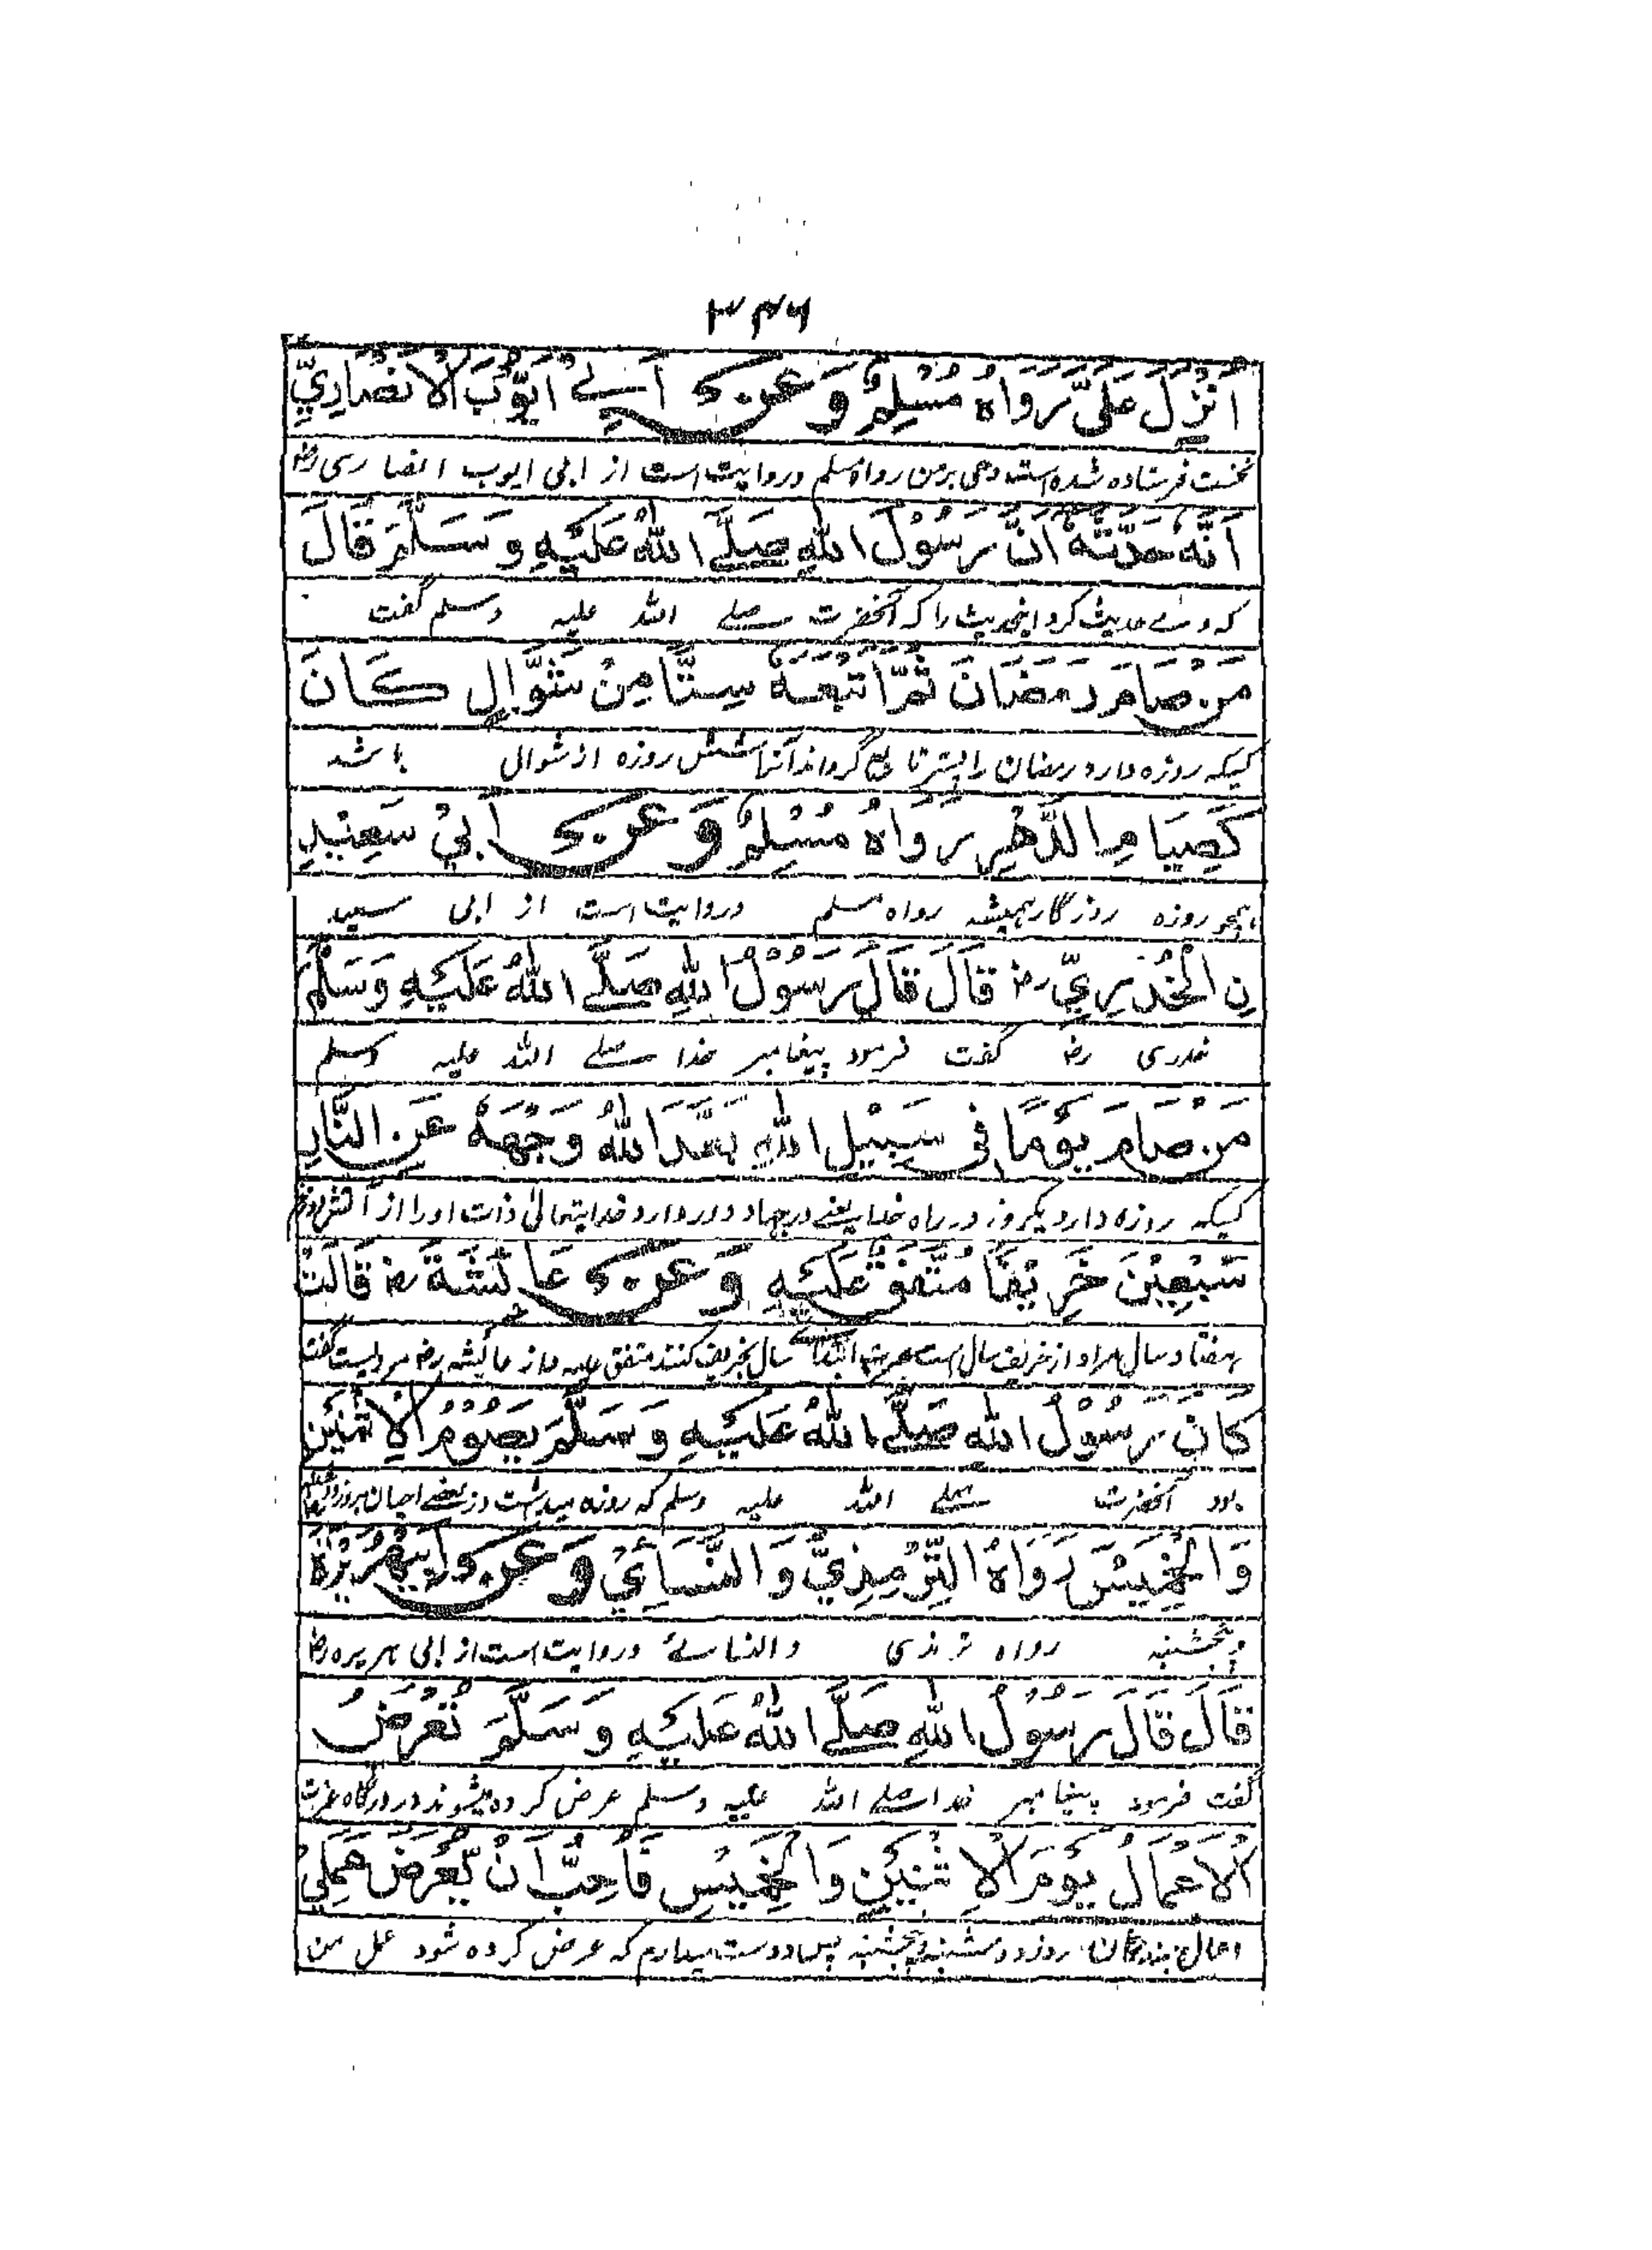 ۳۴۶
اُنْزِلَ عَلَيَّ رَوَاهُ مُسْلِمٌ وَعَنْ اَبِيْ اَيُّوْبَ الْاَنْصَارِيِّ
نخست فرستاده شده است وحی بر من رواه مسلم وروایت است از ابی ایوب انصاری رضہ
اَنَّهٗ حَدَّثَهٗ اَنَّ رَسُوْلَ اللهِ صَلَّے اللهُ عَلَيْهِ وَسَلَّمَ قَالَ
که وے حدیث کرد اینحدیث را که آنحضرت صلے الله علیه وسلم گفت
مَنْ صَامَ رَمَضَانَ ثُمَّ اَتْبَعَهٗ سِتًّا مِنْ شَوَّالٍ كَانَ
کسیکه روزه دارد رمضان را پستر تابع گرداند آنرا شش روزه از شوال باشد
كَصِيَامِ الدَّهْرِ رَوَاهُ مُسْلِمٌ وَعَنْ اَبِيْ سَعِيْدِ
همچو روزه روزگار همیشه رواه مسلم وروایت است از ابی سعید
نِ الْخُدْرِيِّ رضہ قَالَ قَالَ رَسُوْلُ اللهِ صَلَّے اللهُ عَلَيْهِ وَسَلَّمَ
خدری رضہ گفت فرمود پیغامبر خدا صلے الله علیه وسلم
مَنْ صَامَ يَوْمًا فِى سَبِيْلِ اللهِ بَعَّدَ اللهُ وَجْهَهٗ عَنِ النَّارِ
کسیکه روزه دارد یکروز در راه خدا یعنے در جهاد دور دارد خدایتعالیٰ ذات او را از آتش دوزخ
سَبْعِيْنَ خَرِيْفًا مُتَّفَقٌ عَلَيْهِ وَعَنْ عَائِشَةَ رضہ قَالَتْ
هفتاد سال مراد از خریف سال است سال بخریف کنند متفق علیه و از عائیشه رضہ مرویست گفت
كَانَ رَسُوْلُ اللهِ صَلَّے اللهُ عَلَيْهِ وَسَلَّمَ يَصُوْمُ الْاِثْنَيْنِ
بود آنحضرت صلے الله علیه وسلم که روزه میداشت در بعضے احیان بروز
وَالْخَمِيْسَ رَوَاهُ التِّرْمِذِيُّ وَالنَّسَائِيُّ وَعَنْ اَبِيْ هُرَيْرَةَ
وپنجشنبه رواه ترمذی والنسائے وروایت است از ابی هریره رضہ
قَالَ قَالَ رَسُوْلُ اللهِ صَلَّے اللهُ عَلَيْهِ وَسَلَّمَ تُعْرَضُ
گفت فرمود پیغامبر خدا صلے الله علیه وسلم عرض کرده میشوند در درگاه عزت
الْاَعْمَالُ يَوْمَ الْاِثْنَيْنِ وَالْخَمِيْسِ فَاُحِبُّ اَنْ يُّعْرَضَ عَمَلِيْ
اعمال بندگان روز دوشنبه وپنجشنبه پس دوست میدارم که عرض کرده شود عمل من